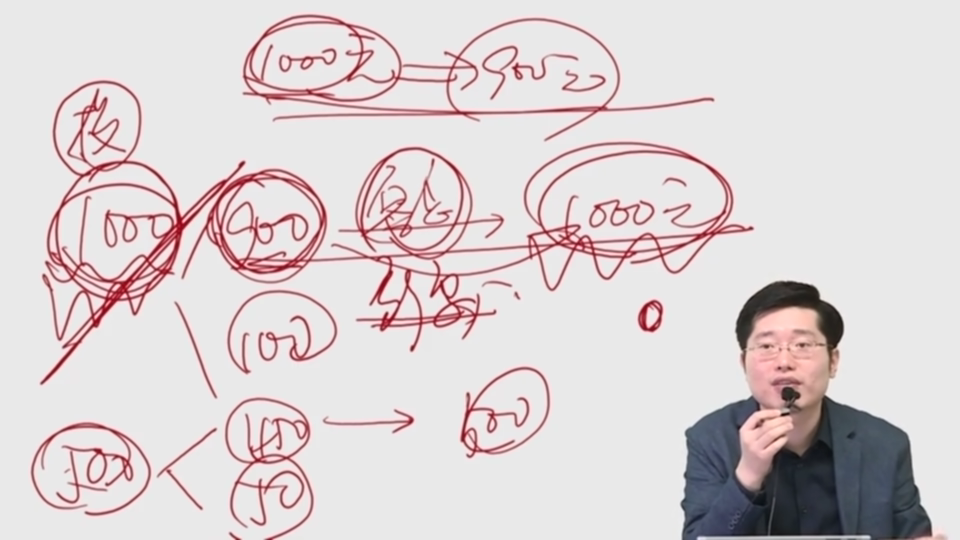 1000元 → 900元
投
1000 900 → 1000元
100
500 450 → 500
50